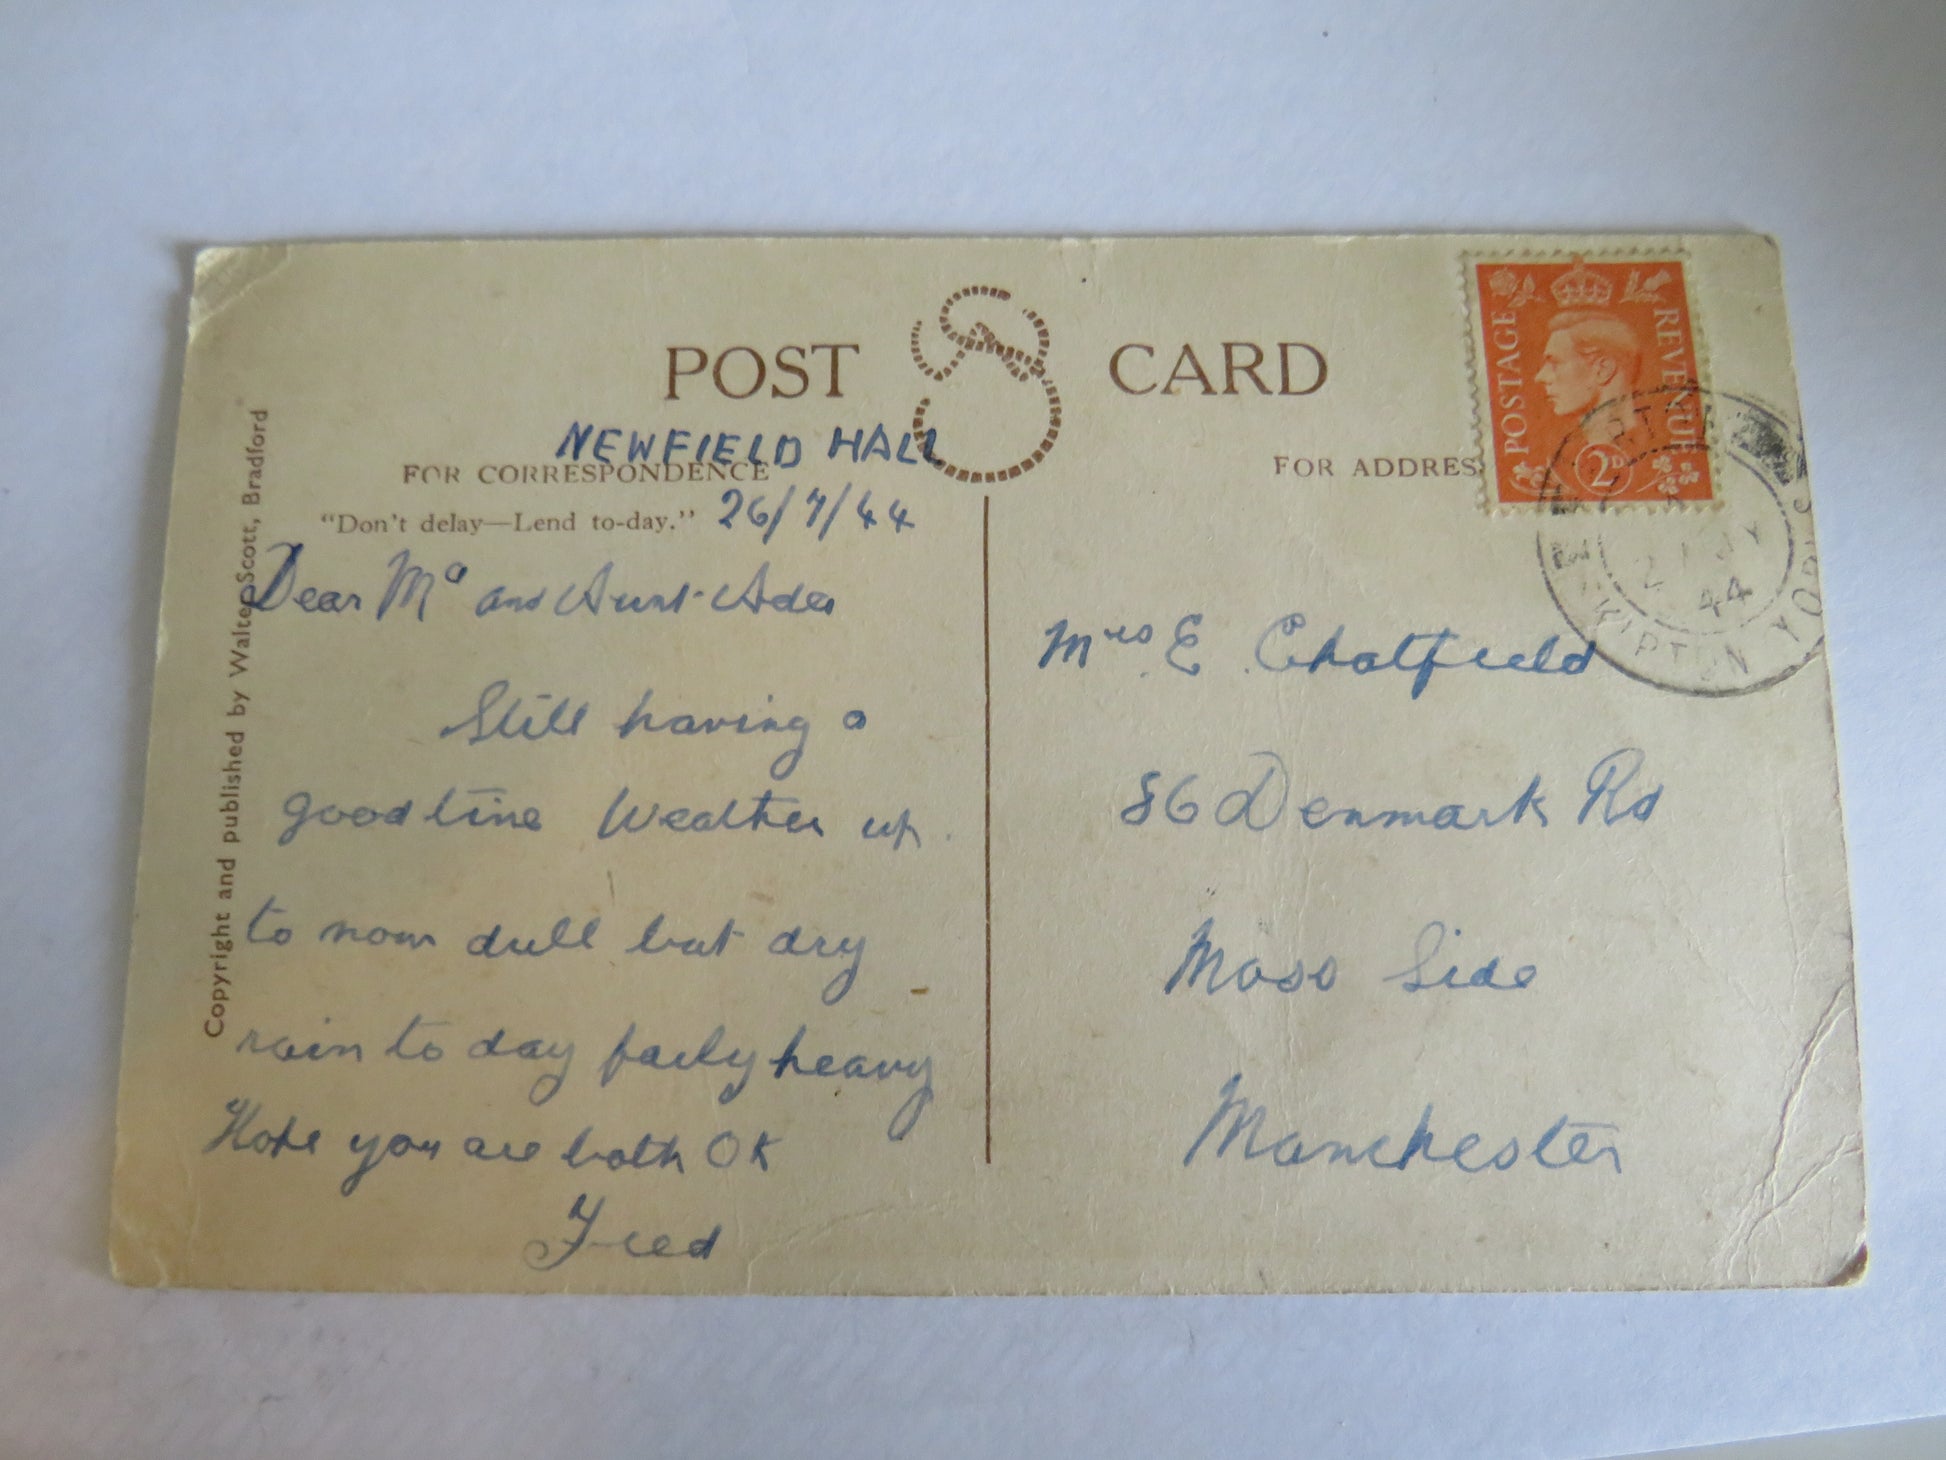 POST CARD
NEWFIELD HALL
FOR CORRESPONDENCE
"Don't delay—Lend to-day." 26/7/44
Dear Ma and Aunt Ada
Still having a
good time Weather up
to now dull but dry
rain to day fairly heavy
Hope you are both OK
Fred
Copyright and published by Walter Scott, Bradford
FOR ADDRES
POSTAGE REVENUE
2D
SKIPTON YORKS
44
Mrs E Chatfield
86 Denmark Rd
Moss Side
Manchester